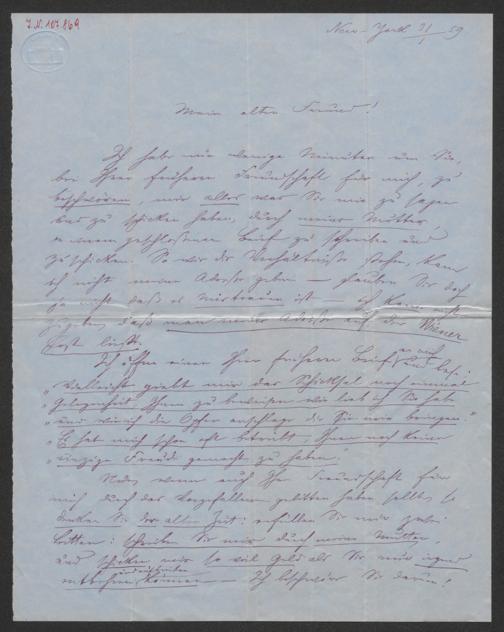 J.N. 107.869
New-York 31/1 59
Mein alter Freund!
Ich habe nur wenige Minuten um Sie,
bei Ihrer früheren Freundschaft für mich, zu
beschwören, mir alles was Sie mir zu sagen
und zu schicken haben, durch meine Mutter,
in einem geschlossenen Brief zu schreiben und
zu schicken. So wie die Verhältnisse stehen, kann
ich nicht meine Adresse geben — glauben Sie doch
ja nicht daß es Mistrauen ist — ich kann nicht
zugeben daß man meine Adresse auf der Wiener
Post liest.
Ich öffne einen Ihrer früheren Briefe und lese:
„Vielleicht giebt mir das Schicksal noch einmal
„Gelegenheit Ihnen zu beweisen wie lieb ich Sie habe
„und wie ich die Opfer anschlage die Sie mir bringen."
„Es hat mich schon oft betrübt, Ihnen noch keine
„einzige Freude gemacht zu haben."
Nun, wenn auch Ihre Freundschaft für
mich durch das Vorgefallene gelitten haben sollte, so
denken Sie der alten Zeit: erfüllen Sie mir zwei
Bitten: schreiben Sie mir durch meine Mutter,
und schicken mir so viel Geld als Sie nur irgend
entbehren können — Ich beschwöre Sie darum!